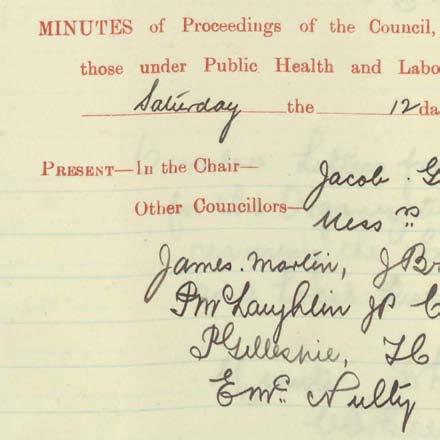 MINUTES of Proceedings of the Council,
those under Public Health and Labo
Saturday the 12 da
PRESENT—In the Chair— Jacob G
Other Councillors— Mess rs
James Martin, J Br
P McLaughlin JP C
P Gillespie, H C
E Mc Nulty